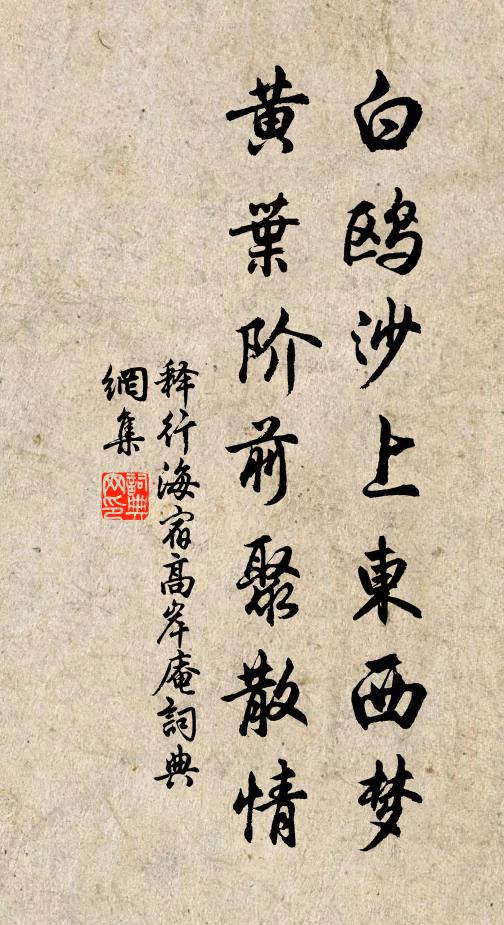 白鸥沙上東西梦
黄葉阶前聚散情
释行海宿高岸庵詞典
網集
詞典網印